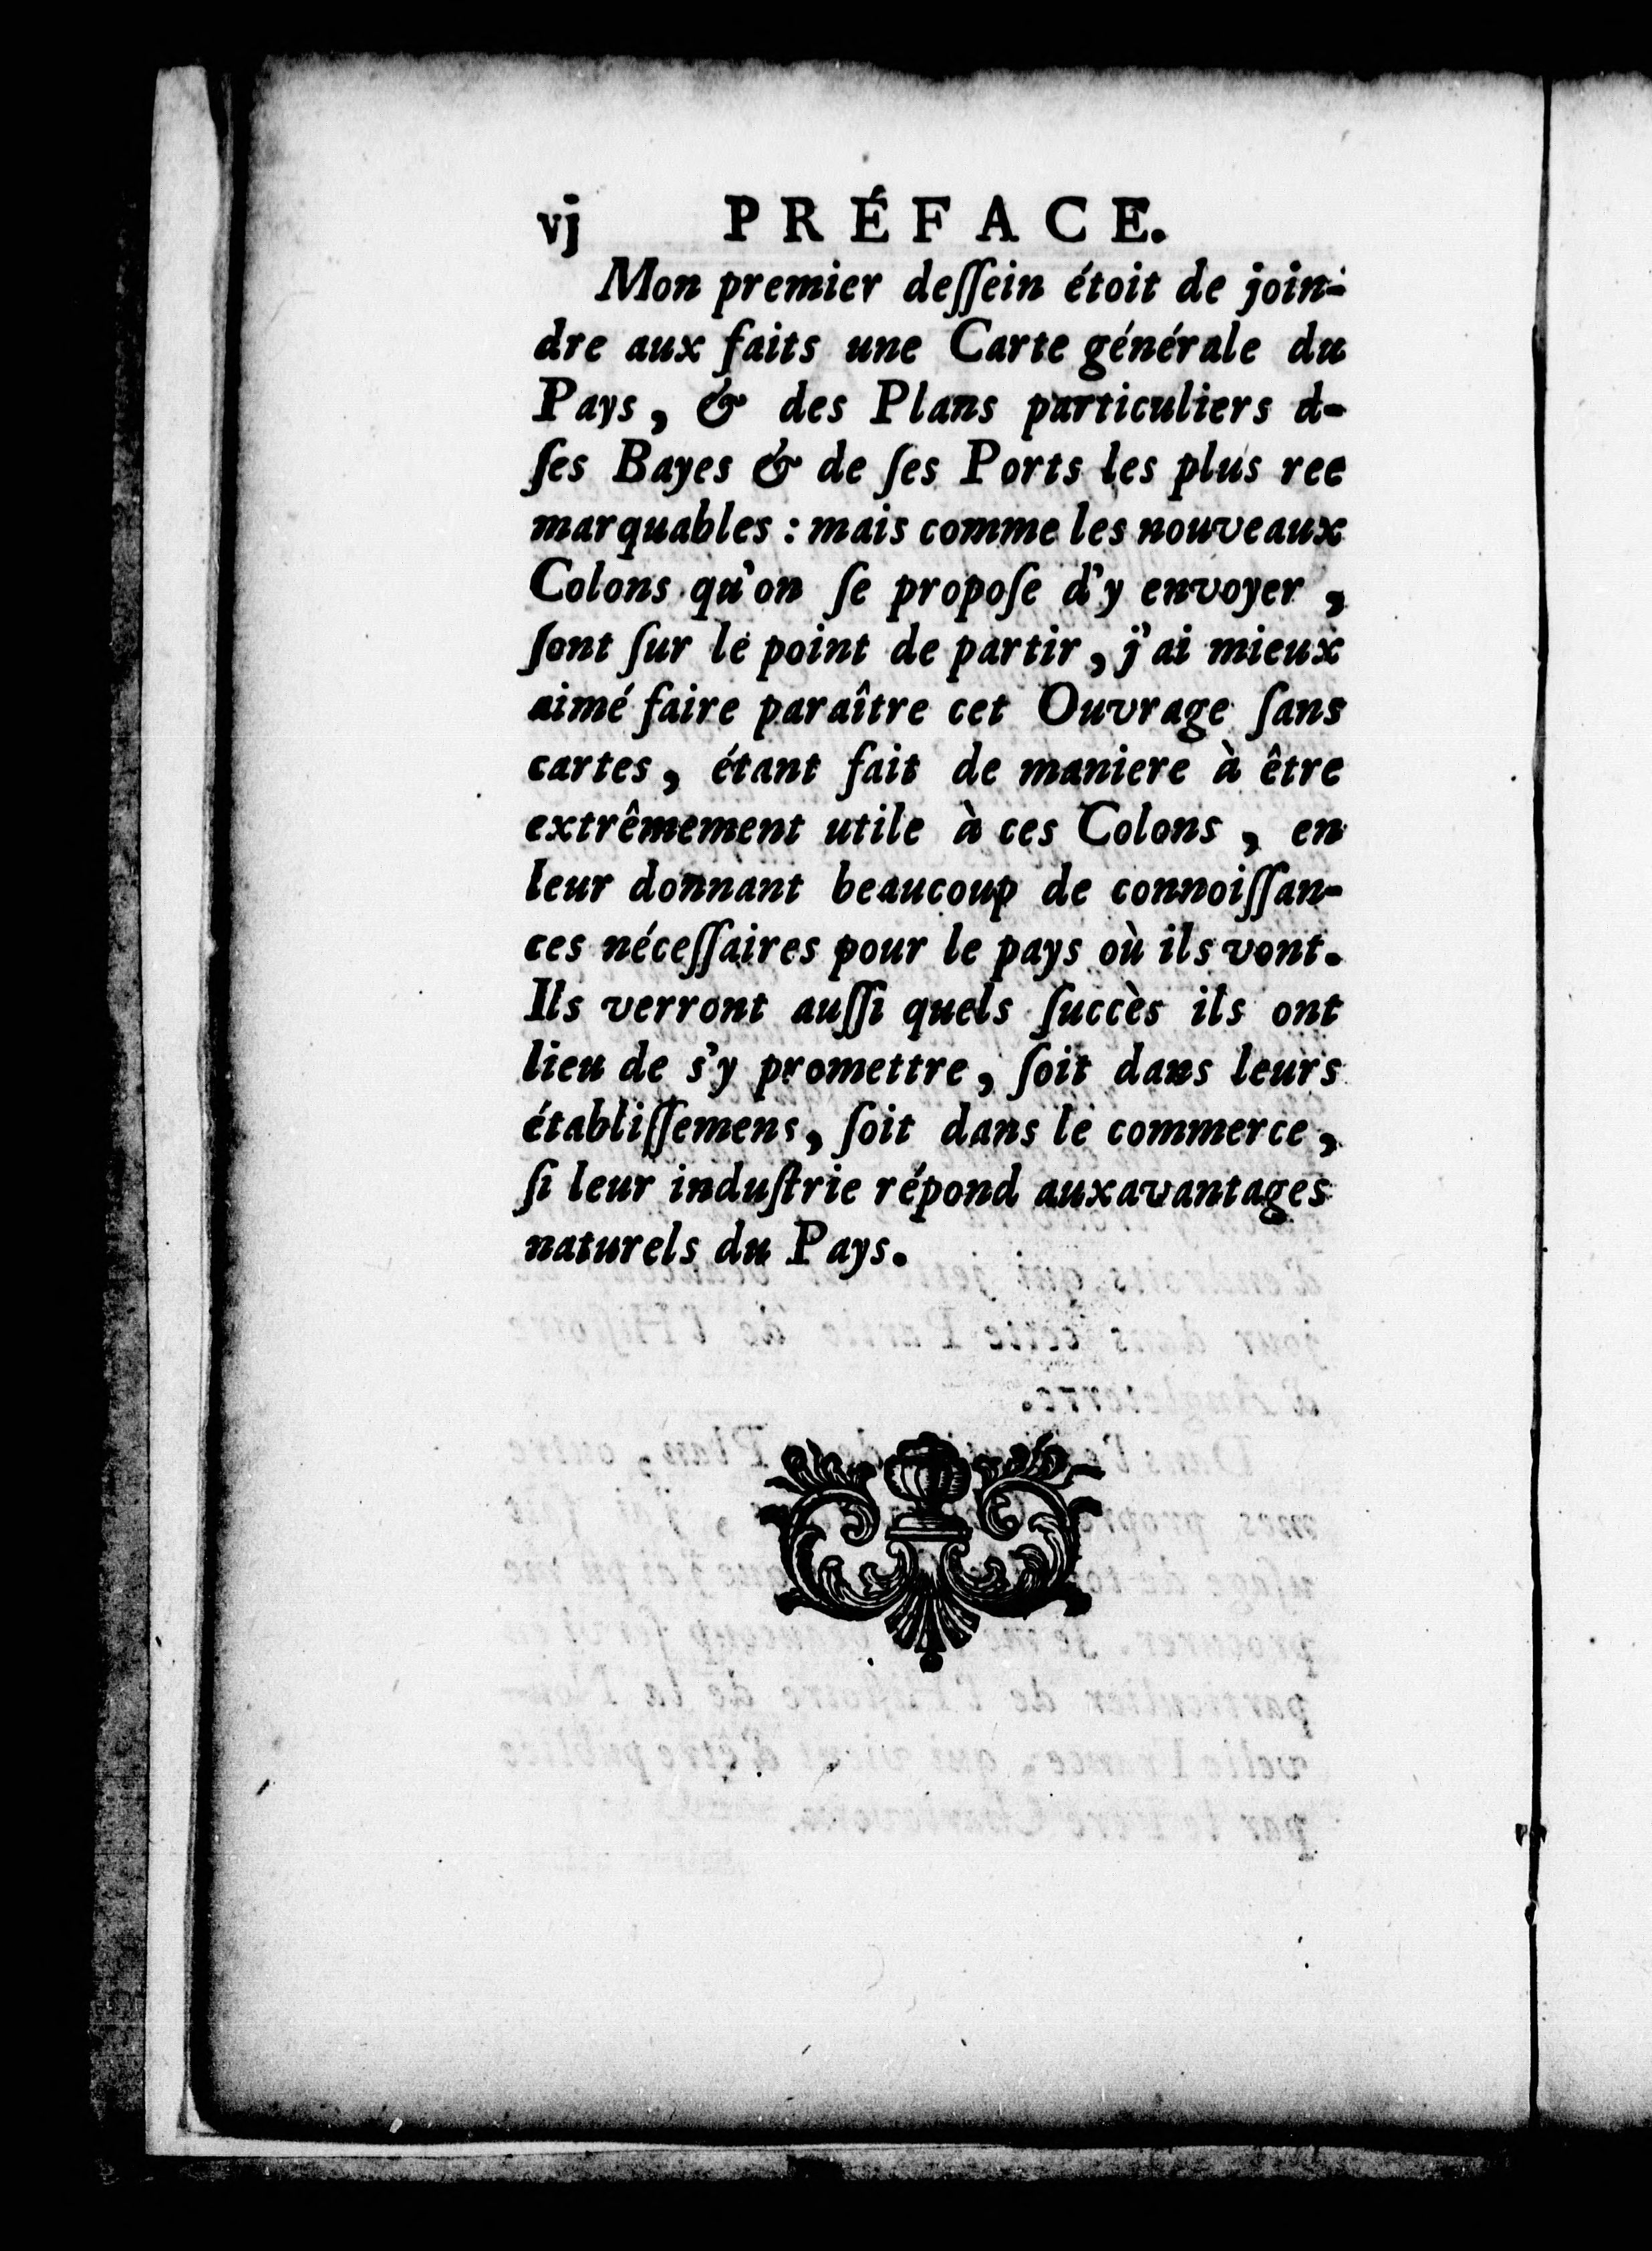 vj PRÉFACE.
Mon premier deſſein étoit de join-
dre aux faits une Carte générale du
Pays, & des Plans particuliers d-
ſes Bayes & de ſes Ports les plus ree
marquables : mais comme les nouveaux
Colons qu'on ſe propoſe d'y envoyer,
ſont ſur le point de partir, j'ai mieux
aimé faire paraître cet Ouvrage ſans
cartes, étant fait de maniere à être
extrêmement utile à ces Colons, en
leur donnant beaucoup de connoiſſan-
ces néceſſaires pour le pays où ils vont.
Ils verront auſſi quels ſuccès ils ont
lieu de s'y promettre, ſoit dans leurs
établiſſemens, ſoit dans le commerce,
ſi leur induſtrie répond aux avantages
naturels du Pays.